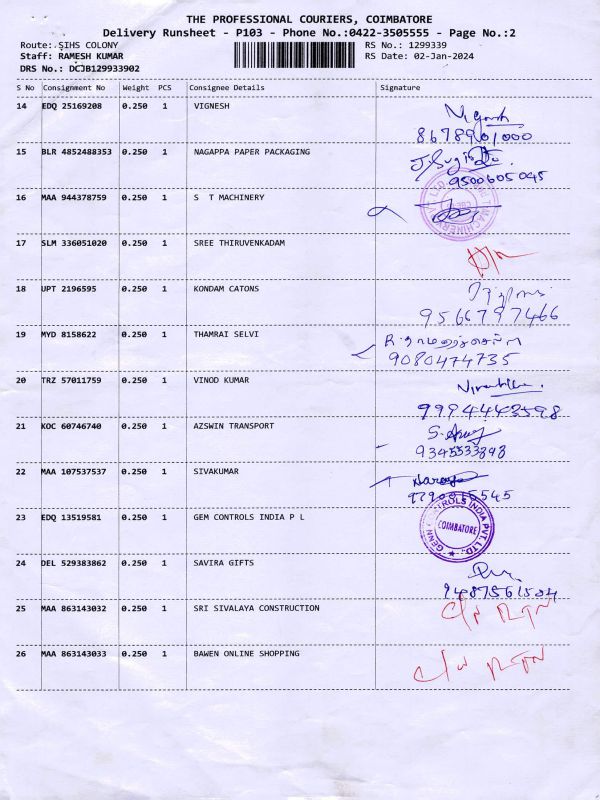 THE PROFESSIONAL COURIERS, COIMBATORE
Delivery Runsheet - P103 - Phone No.:0422-3505555 - Page No.:2
Route: SIHS COLONY RS No.: 1299339
Staff: RAMESH KUMAR RS Date: 02-Jan-2024
DRS No.: DCJB129933902
S No Consignment No Weight PCS Consignee Details Signature
14 EDQ 25169208 0.250 1 VIGNESH
8678901000
15 BLR 4852488353 0.250 1 NAGAPPA PAPER PACKAGING
9500605045
16 MAA 944378759 0.250 1 S T MACHINERY
17 SLM 336051020 0.250 1 SREE THIRUVENKADAM
18 UPT 2196595 0.250 1 KONDAM CATONS
9566797466
19 MYD 8158622 0.250 1 THAMRAI SELVI
9080474735
20 TRZ 57011759 0.250 1 VINOD KUMAR
9994443598
21 KOC 60746740 0.250 1 AZSWIN TRANSPORT
9345533898
22 MAA 107537537 0.250 1 SIVAKUMAR
23 EDQ 13519581 0.250 1 GEM CONTROLS INDIA P L
COIMBATORE
24 DEL 529383862 0.250 1 SAVIRA GIFTS
25 MAA 863143032 0.250 1 SRI SIVALAYA CONSTRUCTION
C/N RTN
26 MAA 863143033 0.250 1 BAWEN ONLINE SHOPPING
C/N RTN